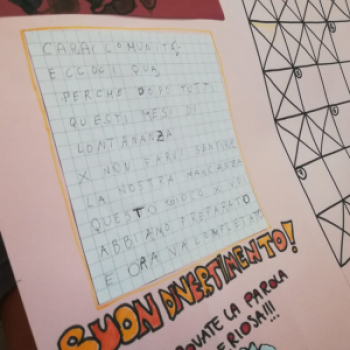 CARA COMUNITÀ,
ECCOCI QUA
PERCHÈ DOPO TUTTI
QUESTI MESI DI
LONTANANZA
X NON FARVI SENTIRE
LA NOSTRA MANCANZA
QUESTO GIOCO X VOI
ABBIAMO PREPARATO
E ORA VA COMPLETATO
BUON DIVERTIMENTO!
LA PAROLA